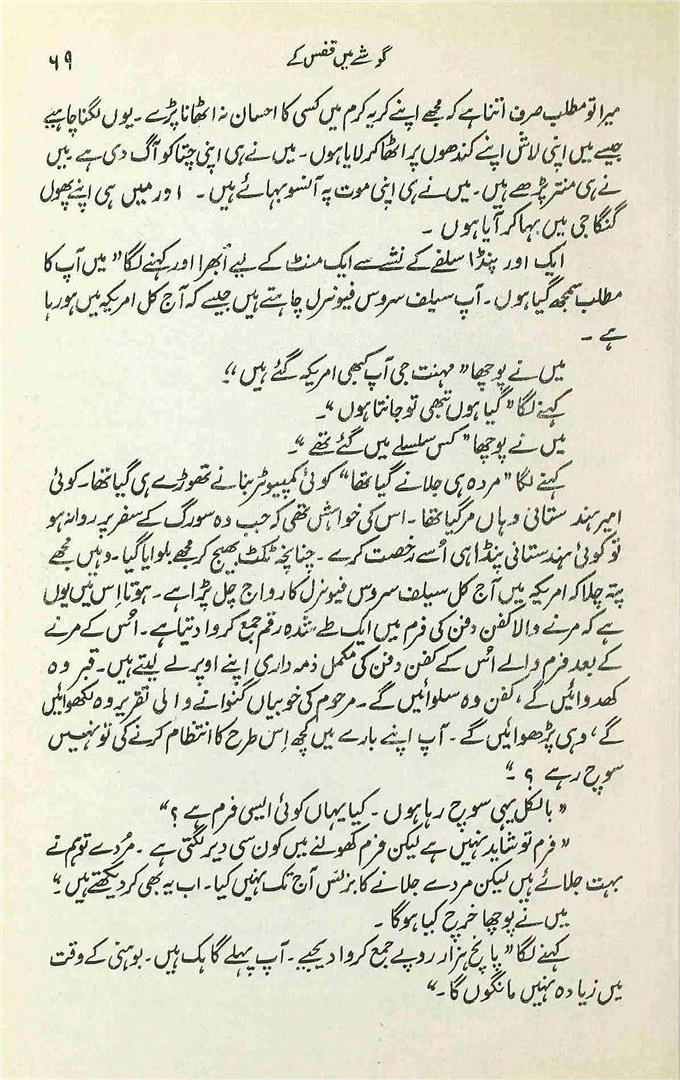 گوشے میں قفس کے
۶۹
میرا تو مطلب صرف اتنا ہے کہ مجھے اپنے کریہ کرم میں کسی کا احسان نہ اٹھانا پڑے۔ یوں لگنا چاہیے
جیسے میں اپنی لاش اپنے کندھوں پر اٹھا کر لایا ہوں۔ میں نے ہی اپنی چتا کو آگ دی ہے۔ میں
نے ہی منتر پڑھے ہیں۔ میں نے ہی اپنی موت پہ آنسو بہائے ہیں۔ اور میں ہی اپنے پھول
گنگا جی میں بہا کر آیا ہوں ۔
ایک اور پنڈا سلفے کے نشے سے ایک منٹ کے لیے اُبھرا اور کہنے لگا ”میں آپ کا
مطلب سمجھ گیا ہوں۔ آپ سیلف سروس فیونرل چاہتے ہیں جیسے کہ آج کل امریکہ میں ہو رہا
ہے ۔
میں نے پوچھا ”مہنت جی آپ کبھی امریکہ گئے ہیں“۔
کہنے لگا ”گیا ہوں تبھی تو جانتا ہوں“۔
میں نے پوچھا ”کس سلسلے میں گئے تھے“۔
کہنے لگا ”مردہ ہی جلانے گیا تھا“ کوئی کمپیوٹر بنانے تھوڑے ہی گیا تھا۔ کوئی
امیر ہندستانی وہاں مر گیا تھا۔ اس کی خواہش تھی کہ جب وہ سورگ کے سفر پر روانہ ہو
تو کوئی ہندستانی پنڈا ہی اُسے رخصت کرے۔ چنانچہ ٹکٹ بھیج کر مجھے بلوایا گیا۔ وہیں مجھے
پتہ چلا کہ امریکہ میں آج کل سیلف سروس فیونرل کا رواج چل پڑا ہے۔ ہوتا اِس میں یوں
ہے کہ مرنے والا کفن دفن کی فرم میں ایک طے شدہ رقم جمع کروا دیتا ہے۔ اُس کے مرنے
کے بعد فرم والے اُس کے کفن دفن کی مکمل ذمہ داری اپنے اوپر لے لیتے ہیں۔ قبر وہ
کھدوائیں گے، کفن وہ سلوائیں گے۔ مرحوم کی خوبیاں گنوانے والی تقریر وہ لکھوائیں
گے، وہی پڑھوائیں گے۔ آپ اپنے بارے میں کچھ اِس طرح کا انتظام کرنے کی تو نہیں
سوچ رہے ؟“۔
”بالکل یہی سوچ رہا ہوں۔ کیا یہاں کوئی ایسی فرم ہے ؟“
”فرم تو شاید نہیں ہے لیکن فرم کھولنے میں کون سی دیر لگتی ہے۔ مُردے تو ہم نے
بہت جلائے ہیں لیکن مردے جلانے کا بزنس آج تک نہیں کیا۔ اب یہ بھی کر دیکھتے ہیں“۔
میں نے پوچھا خرچ کیا ہوگا ۔
کہنے لگا ”پانچ ہزار روپے جمع کروا دیجیے۔ آپ پہلے گاہک ہیں۔ بوہنی کے وقت
میں زیادہ نہیں مانگوں گا۔“